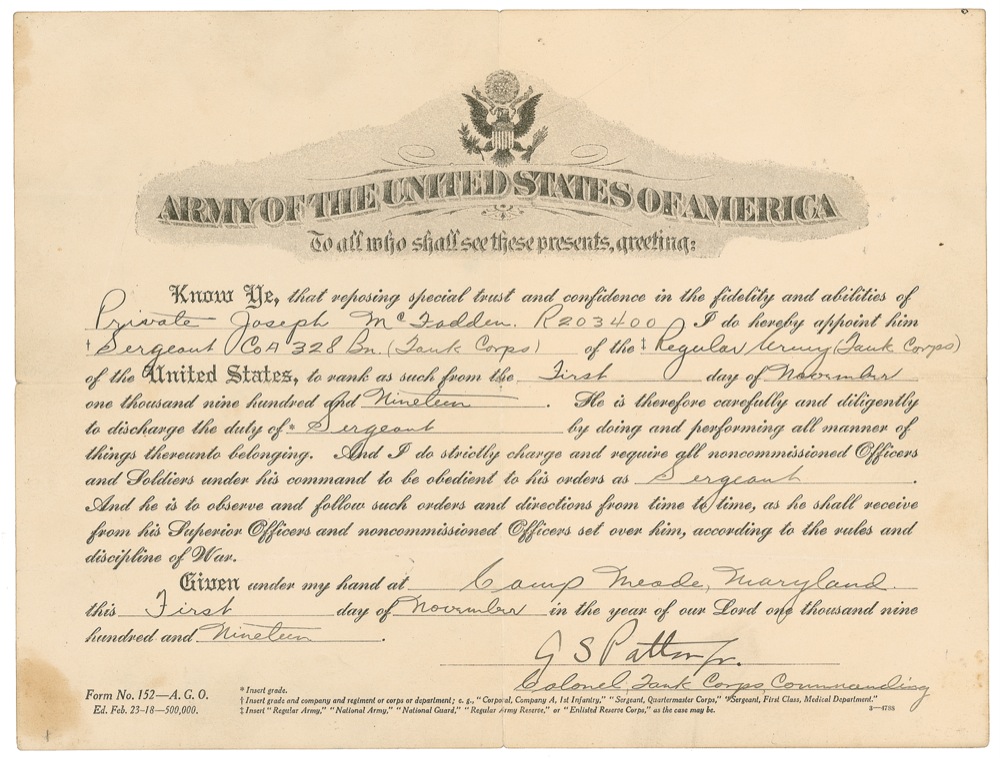 ARMY OF THE UNITED STATES OF AMERICA
To all who shall see these presents, greeting:
Know Ye, that reposing special trust and confidence in the fidelity and abilities of
Private Joseph McFadden. R203400 I do hereby appoint him
† Sergeant Co A 328 Bn. (Tank Corps) of the ‡ Regular Army (Tank Corps)
of the United States, to rank as such from the First day of November
one thousand nine hundred and Nineteen. He is therefore carefully and diligently
to discharge the duty of* Sergeant by doing and performing all manner of
things thereunto belonging. And I do strictly charge and require all noncommissioned Officers
and Soldiers under his command to be obedient to his orders as Sergeant.
And he is to observe and follow such orders and directions from time to time, as he shall receive
from his Superior Officers and noncommissioned Officers set over him, according to the rules and
discipline of War.
Given under my hand at Camp Meade, Maryland
this First day of November in the year of our Lord one thousand nine
hundred and Nineteen.
G S Patton Jr.
Colonel, Tank Corps, Commanding
Form No. 152—A. G. O.
Ed. Feb. 23-18—500,000.
* Insert grade.
† Insert grade and company and regiment or corps or department; e. g., "Corporal, Company A, 1st Infantry," "Sergeant, Quartermaster Corps," "Sergeant, First Class, Medical Department."
‡ Insert "Regular Army," "National Army," "National Guard," "Regular Army Reserve," or "Enlisted Reserve Corps," as the case may be.
3—4788